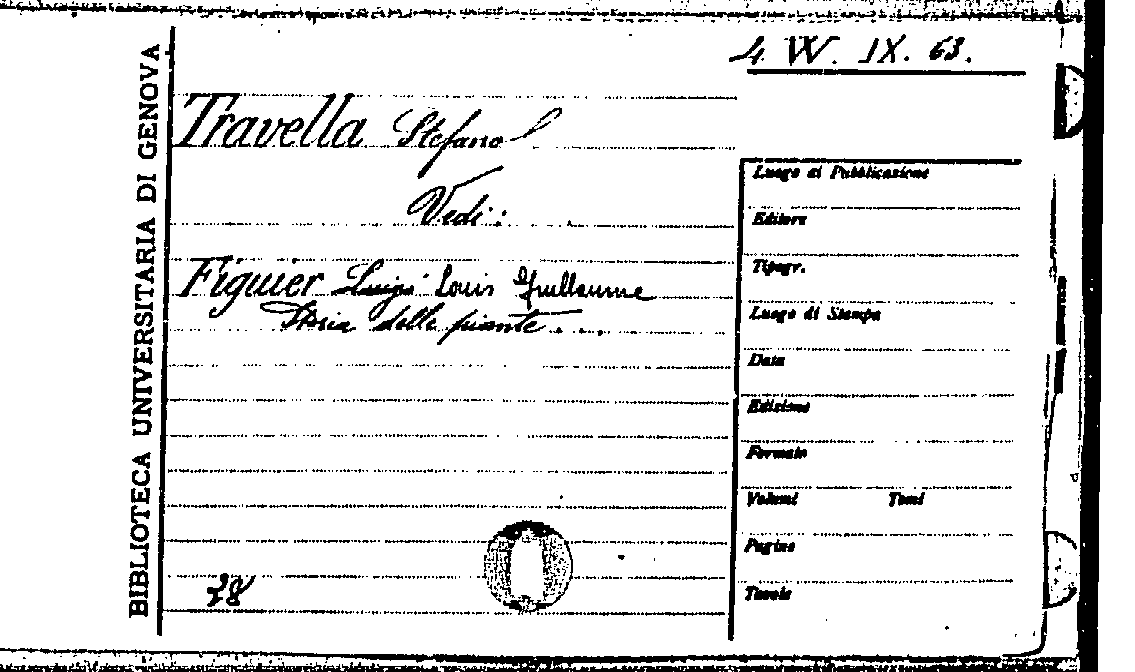 4 W. IX. 63.
BIBLIOTECA UNIVERSITARIA DI GENOVA
Travella Stefano
Vedi:
Figuier Luigi Louis Guillaume
Storia delle piante...
28
Luogo di Pubblicazione
Editore
Tipogr.
Luogo di Stampa
Data
Edizione
Formato
Volumi Tomi
Pagine
Tavole